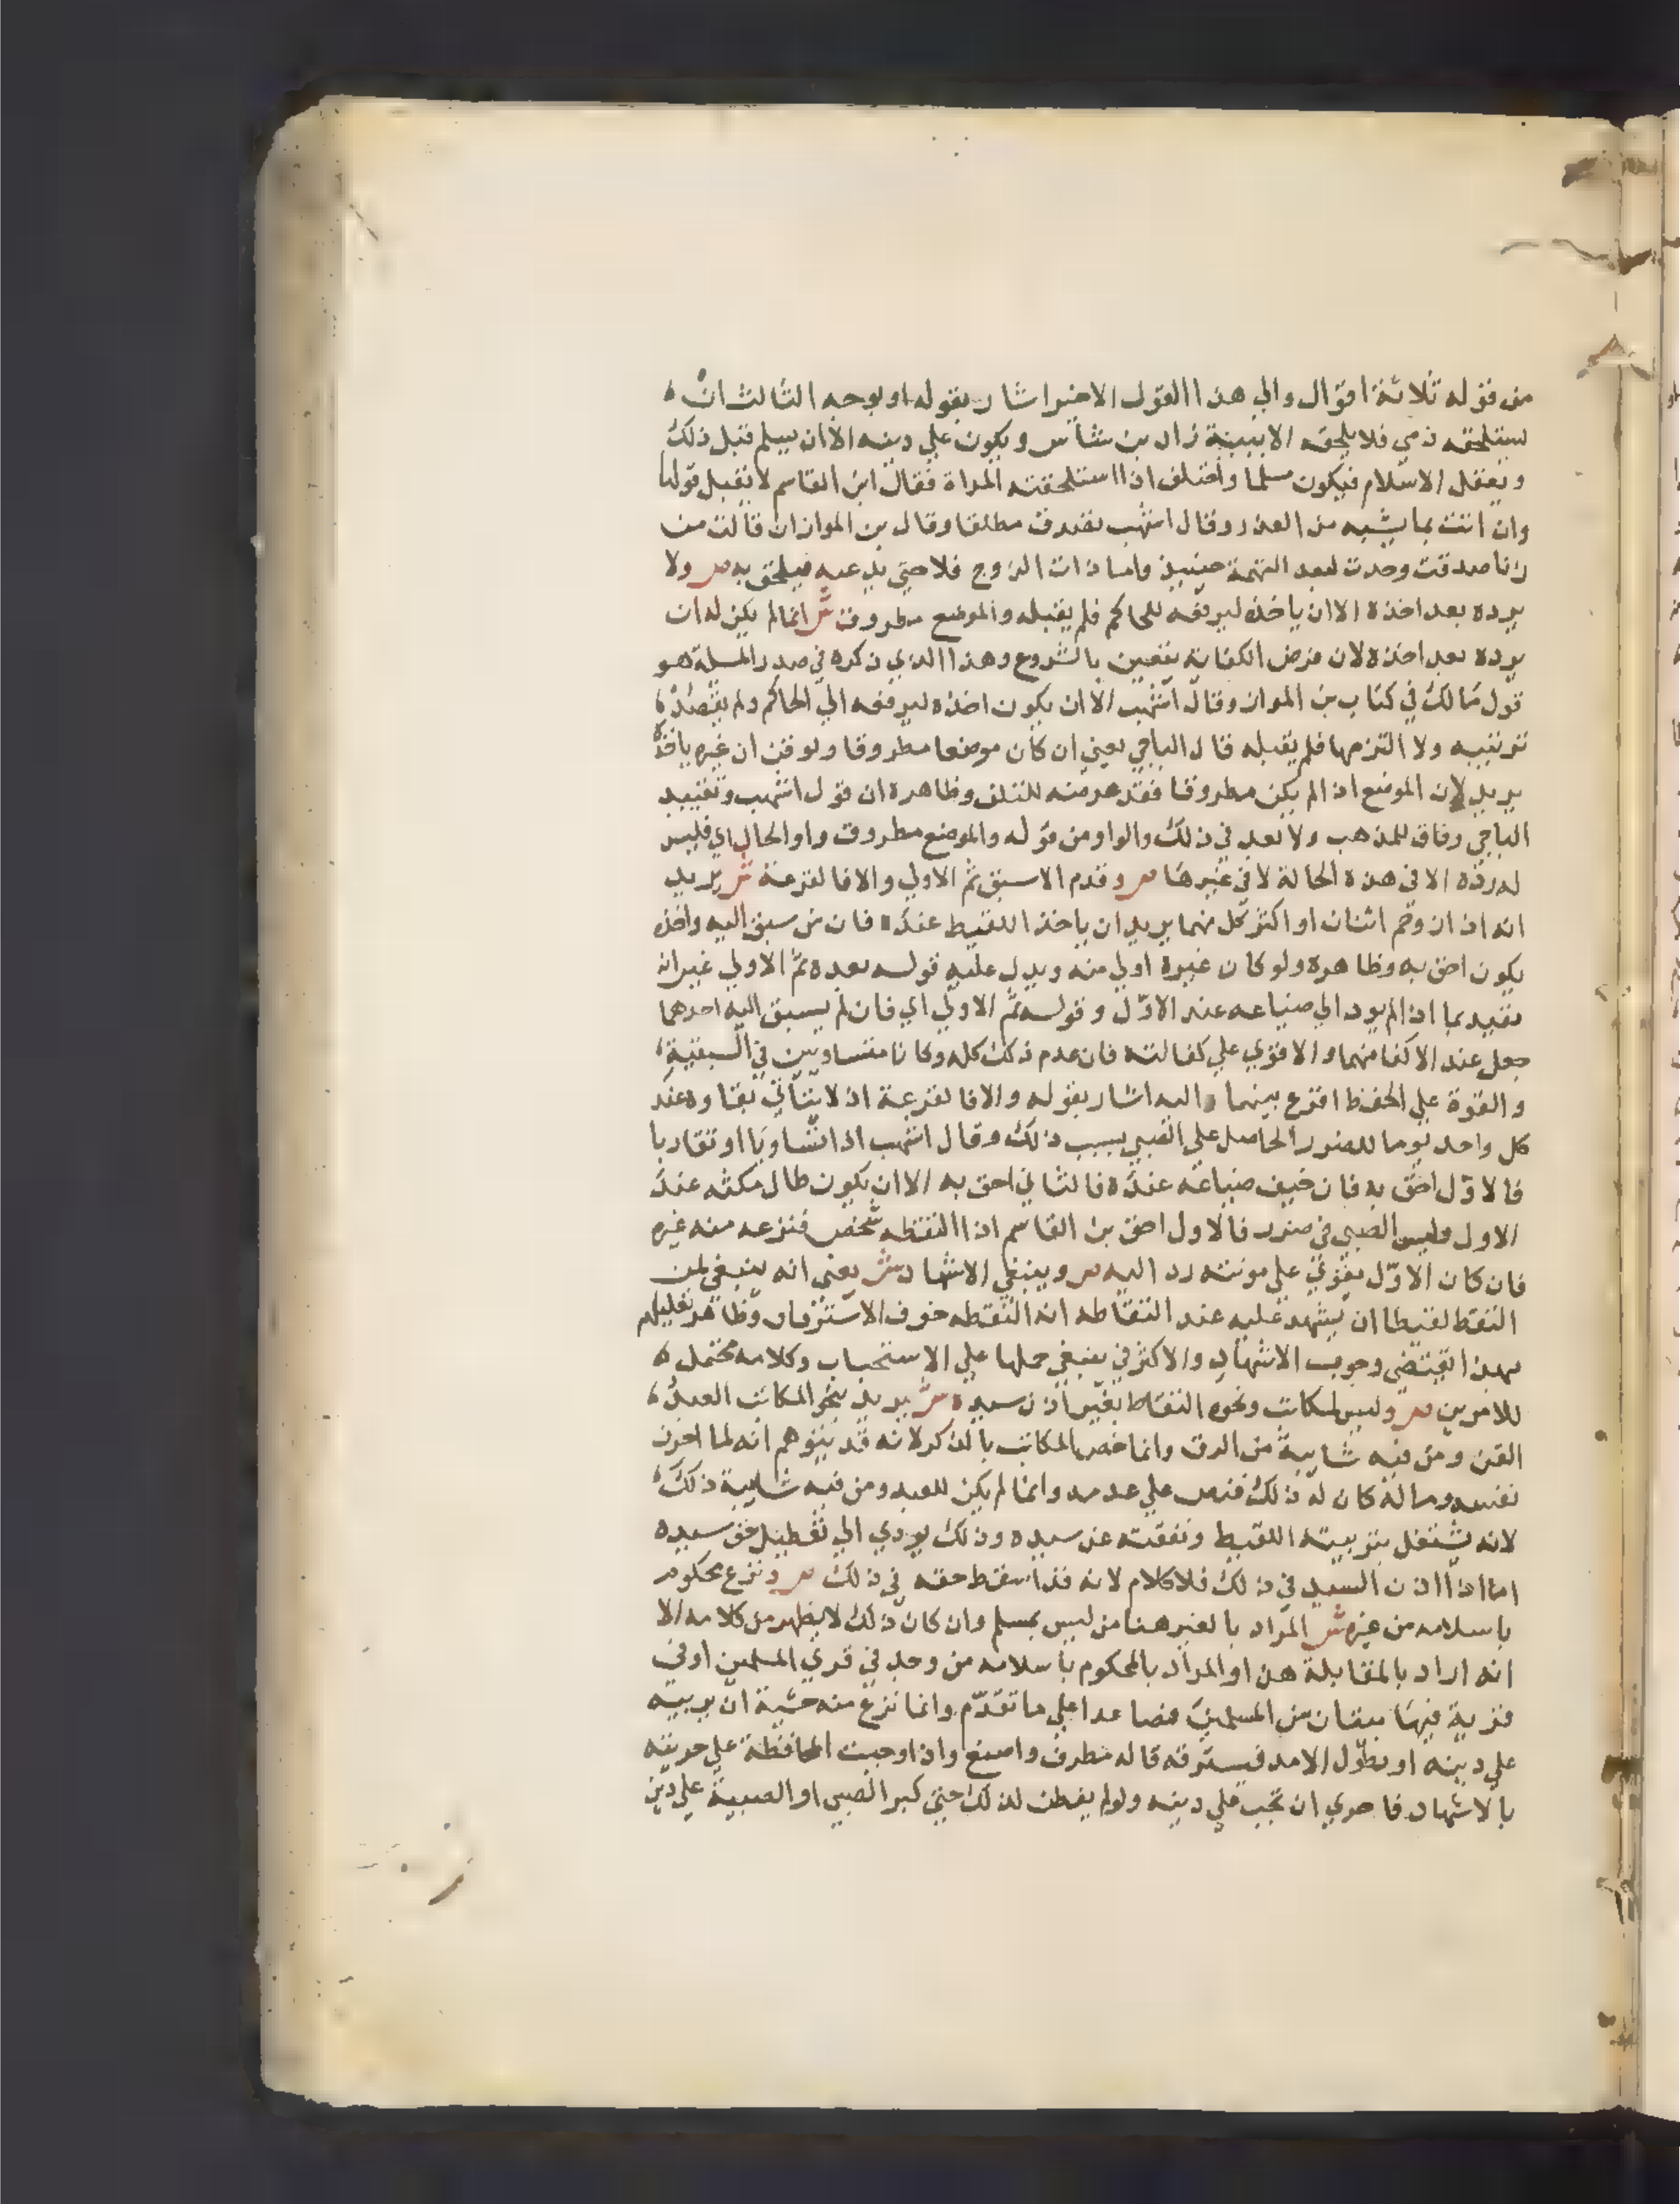 من قوله ثلاثة اقوال والي هذا القول الاخير اشار بقوله او بوجه الثالث ان
يستلحقه ذمي فلا يلحقه الا ببينة زاد بن شاس ويكون علي دينه الا ان يسلم قبل ذلك
ويعقل الاسلام فيكون مسلما واختلف اذا استلحقته المراة فقال ابن القاسم لا يقبل قولها
وان اتت بما يشبه من العذر وقال اشهب تصدق مطلقا وقال بن المواز ان قالت من
زنا صدقت وحدت لبعد التهمة حينيذ واما ذات الزوج فلا حتي يدعيه فيلحق به ص ولا
يرده بعد اخذه الا ان ياخذه ليرفعه للحاكم فلم يقبله والموضع مطروق ش انما لم يكن له ان
يرده بعد اخذه لان فرض الكفاية يتعين بالشروع وهذا الذي ذكره في صدر المسلة هو
قول مالك في كتاب بن المواز وقال اشهب الا ان يكون اخذه ليرفعه الي الحاكم ولم يقصد
تربيته ولا التزمها فلم يقبله قال الباجي يعني ان كان موضعا مطروقا ويوقن ان غيره ياخذه
يريد لان الموضع اذا لم يكن مطروقا فقد عرضه للتلف وظاهره ان قول اشهب وتقييد
الباجي وفاق للمذهب ولا بعد في ذلك والواو من قوله والموضع مطروق واو الحال اي فليس
له رده الا في هذه الحالة لا في غيرها ص وقدم الاسبق ثم الاولي والا فالقرعة ش يريد
انه اذا ازدحم اثنان او اكثر كل منهما يريد ان ياخذ اللقيط عنده فان من سبق اليه واخذه
يكون احق به وظاهره ولو كان غيره اولي منه ويدل عليه قوله بعده ثم الاولي غير انه
يقيد بما اذا لم يود الي ضياعه عند الاول وقوله ثم الاولي اي فان لم يسبق اليه احدهما
جعل عند الاكفا منهما والاقوي علي كفالته فان عدم ذلك كله وكانا متساويين في السبقية
والقوة علي الحفظ اقرع بينهما واليه اشار بقوله والا فالقرعة اذ لا يتاتي بقاوه عند
كل واحد يوما للضرر الحاصل علي الصبي بسبب ذلك وقال اشهب اذا تساويا او تقاربا
فالاول احق به فان خيف ضياعه عنده فالثاني احق به الا ان يكون طال مكثه عند
الاول وليس الصبي في ضرر فالاول احق بن القاسم اذا التقطه شخص فنزعه منه غيره
فان كان الاول يقوي علي مونته رد اليه ص وينبغي الاشهاد ش يعني انه ينبغي لمن
التقط لقيطا ان يشهد عليه عند التقاطه انه التقطه خوف الاسترقاق وظاهر تعليلهم
بهذا يقتضي وجوب الاشهاد والاكثر في ينبغي حملها علي الاستحباب وكلامه محتمل
للامرين ص وليس لمكاتب ونحوه التقاط بغير اذن سيده ش يريد بنحو المكاتب العبد
القن ومن فيه شايبة من الرق وانما خص المكاتب بالذكر لانه قد يتوهم انه لما احرز
نفسه وماله كان له ذلك فنص علي عدمه وانما لم يكن للعبد ومن فيه شايبة ذلك
لانه يشتغل بتربيته اللقيط ونفقته عن سيده وذلك يودي الي تعطيل حق سيده
اما اذا اذن السيد في ذلك فلا كلام لانه قد اسقط حقه في ذلك ص ونزع محكوم
باسلامه من غيره ش المراد بالغير هنا من ليس بمسلم وان كان ذلك لا يظهر من كلامه الا
انه اراد بالمقابلة هذا والمراد بالمحكوم باسلامه من وجد في قري المسلمين او في
قرية فيها بيتان من المسلمين فصاعدا علي ما تقدم وانما نزع منه خشية ان يربيه
علي دينه او يطول الامد فيسترقه قاله مطرف واصبغ واذا وجبت المحافظة علي حريته
بالاشهاد فاحري ان تجب علي دينه ولو لم يفطن لذلك حتي كبر الصبي او الصبية علي دين